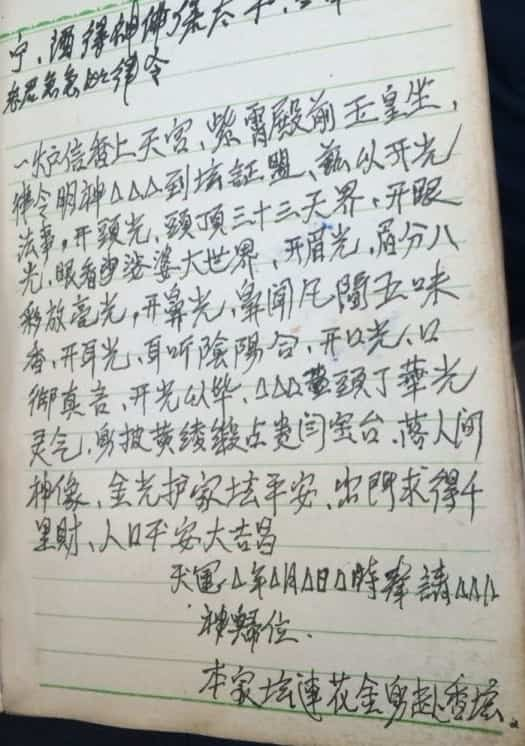 宁，酒得神佛保太平，
急急如律令
一炉信香上天宫、紫霄殿前玉皇坐，
律令明神△△△到坛証盟、兹从开光
法事，开頭光、頭頂三十三天界、开眼
光，眼看婆婆大世界、开眉光，眉分八
彩放毫光，开鼻光，鼻闻凡間五味
香、开耳光、耳听陰陽合，开口光、口
御真言、开光以毕、△△△頭丁華光
灵气，身披黄绫緞占贵闫宝台、落人间
神像、金光护家坛平安、出門求得千
里財、人口平安大吉昌
天運△年△月△日△時奉請△△△
神歸位．
本家坛連花金身赴香坛。